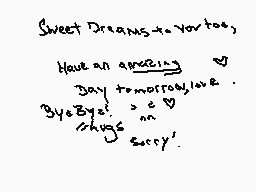 Sweet Dreams to you too,
Have an amazing ♡
Day tomorrow, love.
ByeBye! > < ♡
*hugs
Sorry!